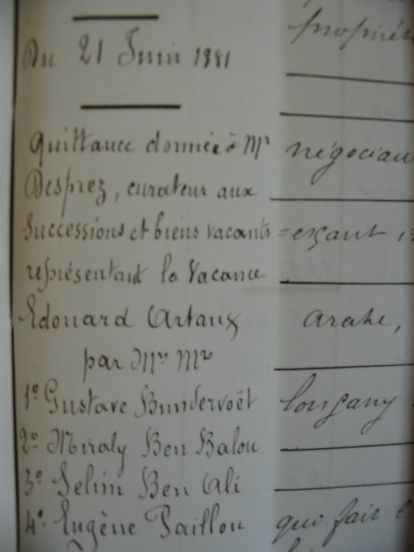 Du 21 Juin 1881
Quittance donnée à Mr
Desprez, curateur aux
Successions et biens vacants
représentant la Vacance
Edouard Artaux
par Mrs Mrs
1º Gustave Bundervoët
2º Miraly Ben Balou
3º Selim Ben Ali
4º Eugène Paillou
propriét
négocian
arabe,
qui fait